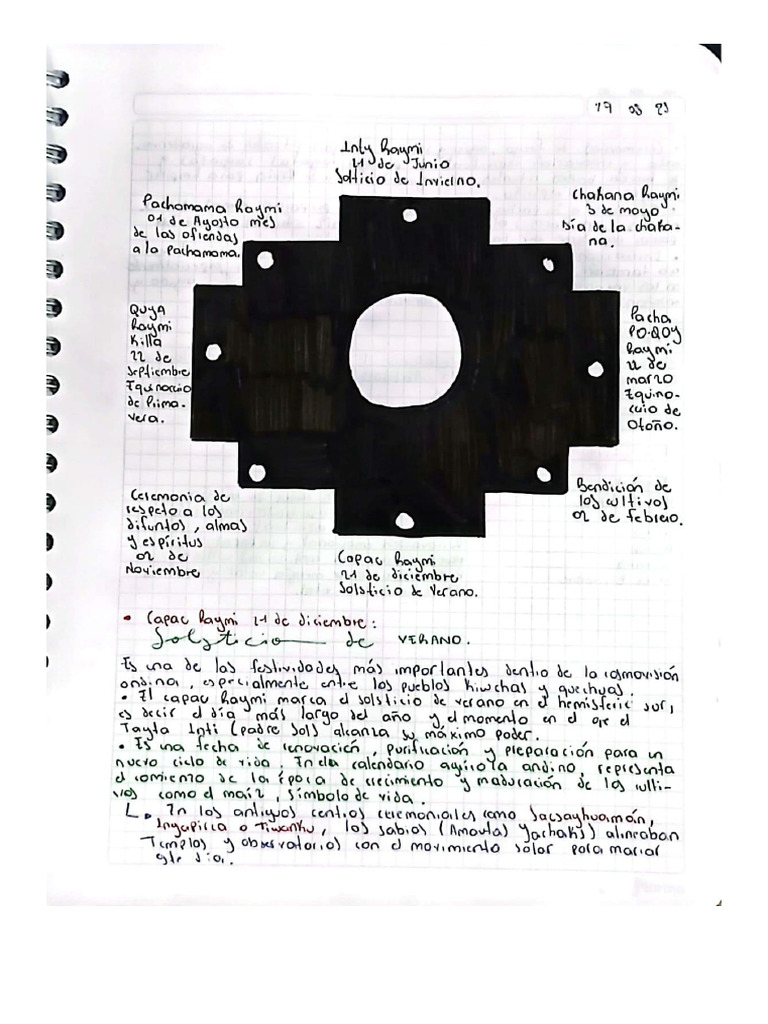 19 03 25
Inty Raymi
21 de Junio
Solticio de Invierno.
Chakana Raymi
3 de mayo
Día de la chaka-
na.
Pachamama Raymi
01 de Agosto mes
de las ofrendas
a la Pachamama.
Quya
Raymi
Killa
22 de
Septiembre
Equinoccio
de Prima-
vera.
Pacha
PO.QOY
Raymi
21 de
marzo
Equino-
ccio de
Otoño.
Ceremonia de
respeto a los
difuntos, almas
y espíritus
02 de
Noviembre
Bendición de
los cultivos
02 de febrero.
Capac Raymi
21 de diciembre
Solsticio de Verano.
• Capac Raymi 21 de diciembre:
Solsticio de VERANO.
Es una de las festividades más importantes dentro de la cosmovisión
andina, especialmente entre los pueblos kiwchas y quechuas.
• El capac Raymi marca el solsticio de verano en el hemisferio sur,
es decir el día más largo del año y el momento en el que el
Tayta Inti (padre Sol) alcanza su máximo poder.
• Es una fecha de renovación, purificación y preparación para un
nuevo ciclo de vida. En el calendario agrícola andino, representa
el comienzo de la época de crecimiento y maduración de los culti-
vos como el maíz, símbolo de vida.
L. En los antiguos centros ceremoniales como Sacsayhuamán,
Ingapirca o Tiwanku, los sabios (Amawtas yachaks) alineaban
Templos y observatorios con el movimiento solar para marcar
este día.